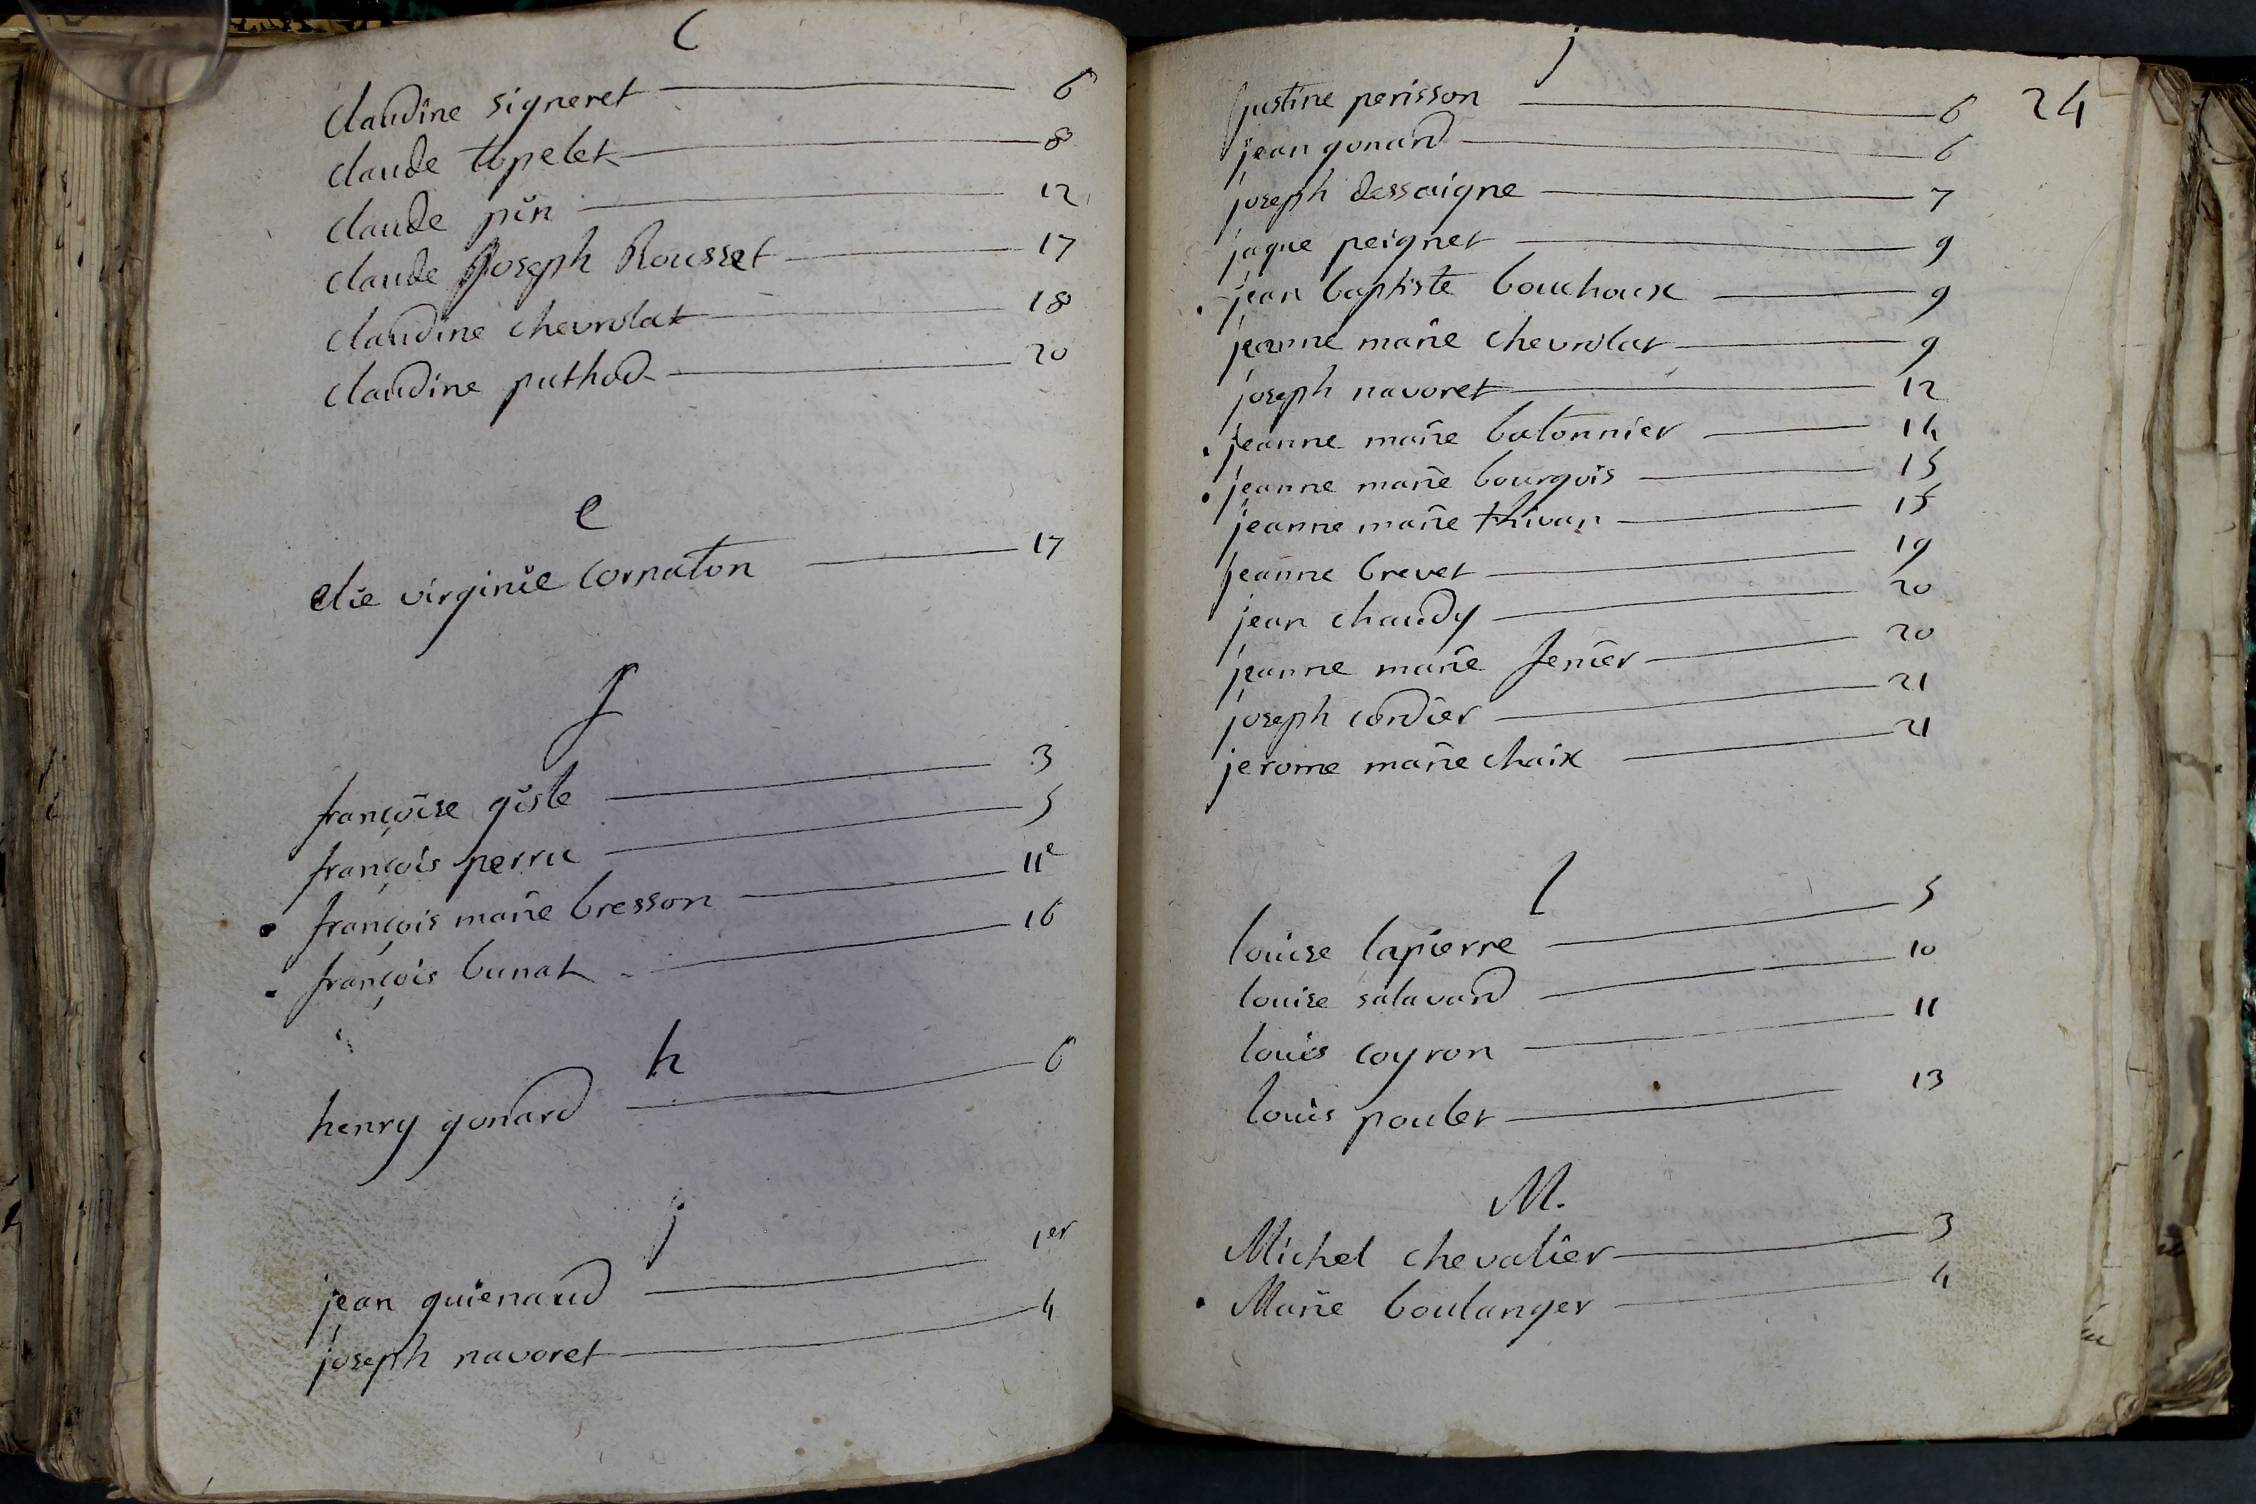 C
claudine signeret 6
claude topelet 8
claude pin 12
claude Joseph Rousset 17
claudine chevrolat 18
claudine puthod 20
e
elie virginie cornaton 17
f
françoise giste 3
françois perru 5
françois marie bresson 11e
françois bunat 16
h
henry gonard 6
j
jean guienard 1er
joseph navoret 4
j
24
justine perisson 6
jean gonard 6
joseph dessaigne 7
jaque peignet 9
jean baptiste bouchoux 9
jeanne marie chevrolat 9
joseph navoret 12
jeanne marie batonnier 14
jeanne marie bourgois 15
jeanne marie thivan 15
jeanne brevet 19
jean chaudy 20
jeanne marie ferrier 20
joseph cordier 21
jerome marie chaix 21
l
louise lapierre 5
louise salavard 10
louis coyron 11
louis poulet 13
M.
Michel chevalier 3
Marie boulanger 4